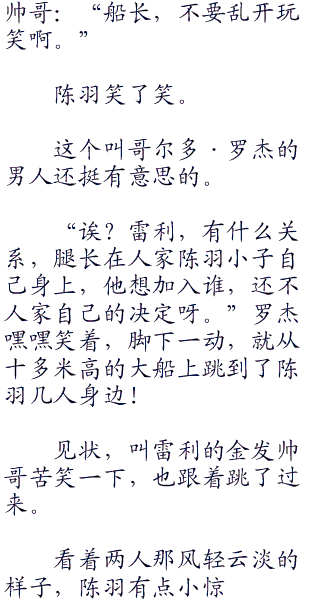 帅哥：“船长，不要乱开玩
笑啊。”
陈羽笑了笑。
这个叫哥尔多·罗杰的
男人还挺有意思的。
“诶？雷利，有什么关
系，腿长在人家陈羽小子自
己身上，他想加入谁，还不
人家自己的决定呀。”罗杰
嘿嘿笑着，脚下一动，就从
十多米高的大船上跳到了陈
羽几人身边！
见状，叫雷利的金发帅
哥苦笑一下，也跟着跳了过
来。
看着两人那风轻云淡的
样子，陈羽有点小惊